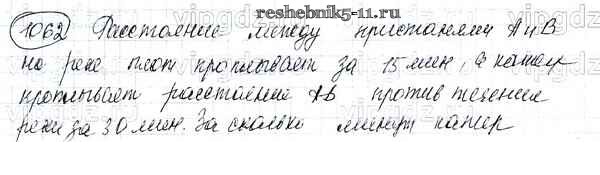 reshebnik5-11.ru
1062 Расстояние между пристанями А и В
по реке плот проплывает за 15 мин, а катер
проплывает расстояние АВ против течения
реки за 30 мин. За сколько минут катер